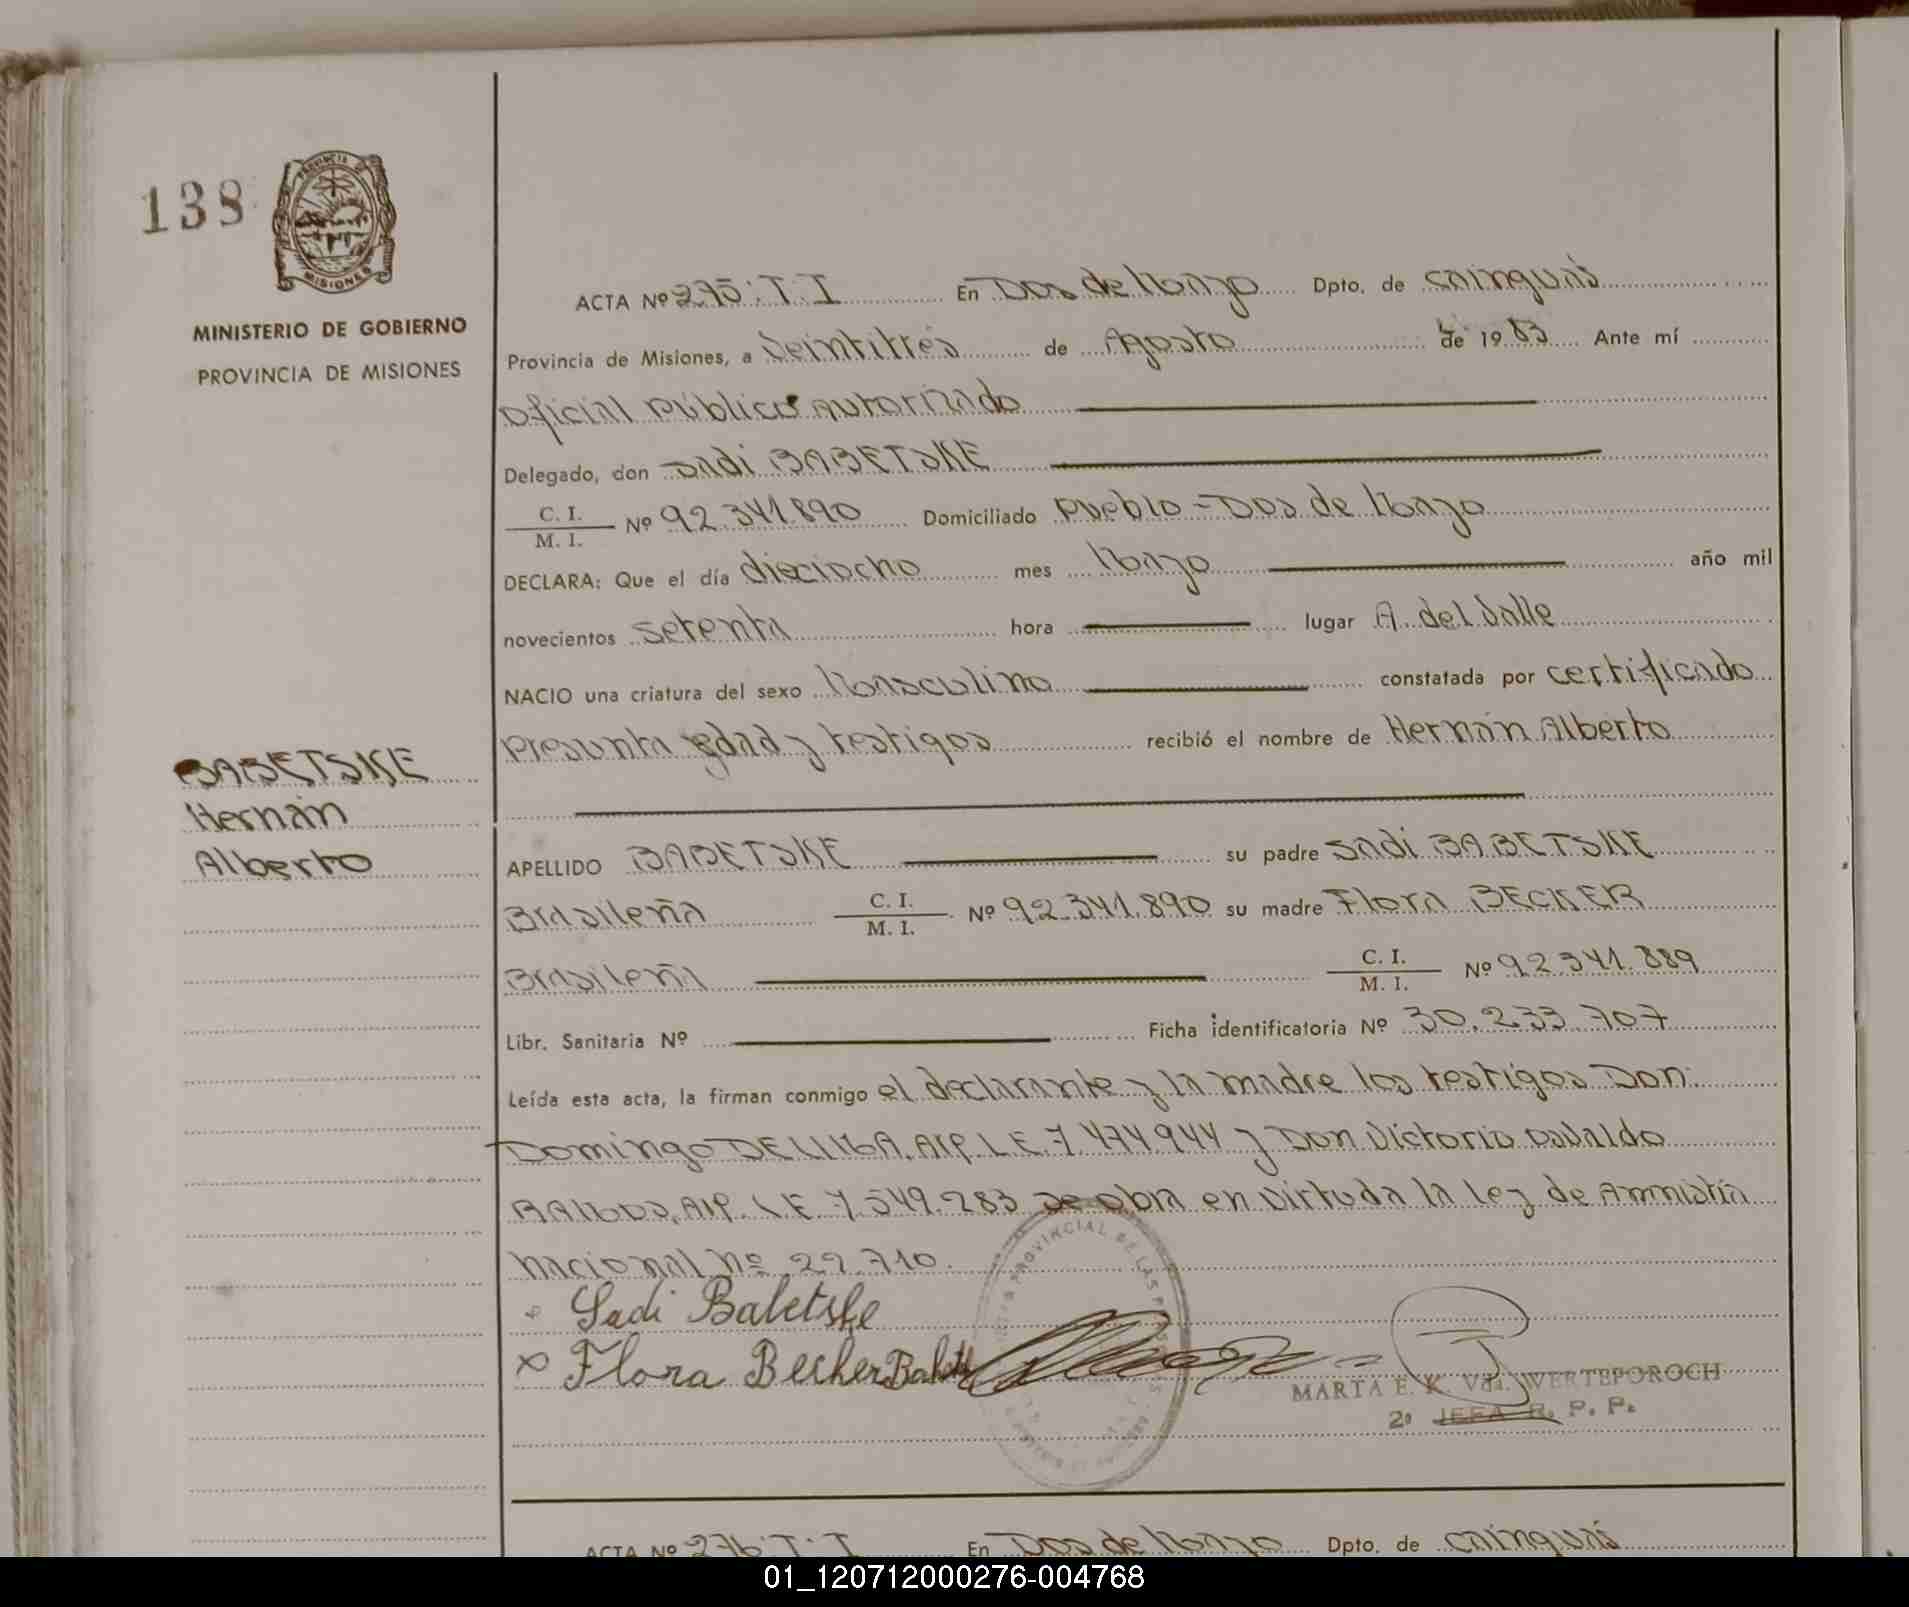 138
PROVINCIA DE
MISIONES
MINISTERIO DE GOBIERNO
PROVINCIA DE MISIONES
ACTA Nº 275. T. I En Dos de Mayo Dpto. de Cainguás
Provincia de Misiones, a Veintitrés de Agosto de 1983 Ante mí
Oficial Público Autorizado
Delegado, don Sadi BABETSKE
C. I. / M. I. Nº 92.341.890 Domiciliado Pueblo - Dos de Mayo
DECLARA: Que el día dieciocho mes Mayo año mil
novecientos setenta hora lugar A. del Valle
NACIO una criatura del sexo Masculino constatada por certificado
presunta edad y testigos recibió el nombre de Hernán Alberto
BABETSKE
Hernán
Alberto
APELLIDO BABETSKE su padre Sadi BABETSKE
Brasileña C. I. / M. I. Nº 92.341.890 su madre Flora BECKER
Brasileña C. I. / M. I. Nº 92.341.889
Libr. Sanitaria Nº Ficha identificatoria Nº 30.233.707
Leída esta acta, la firman conmigo el declarante y la madre los testigos Don
Domingo DE LIMA, Arg. L.E. 7.474.944 y Don Victorio Osvaldo
RAMOS, Arg. L.E. 7.549.283 se obra en virtud a la Ley de Amnistía
Nacional Nº 22.710.
Sadi Babetske
x Flora Becker
MARTA E. K. Vda. WERTEPOROCH
2º JEFA R. P. P.
ACTA Nº 276. T. I En Dos de Mayo Dpto. de Cainguás
01_120712000276-004768